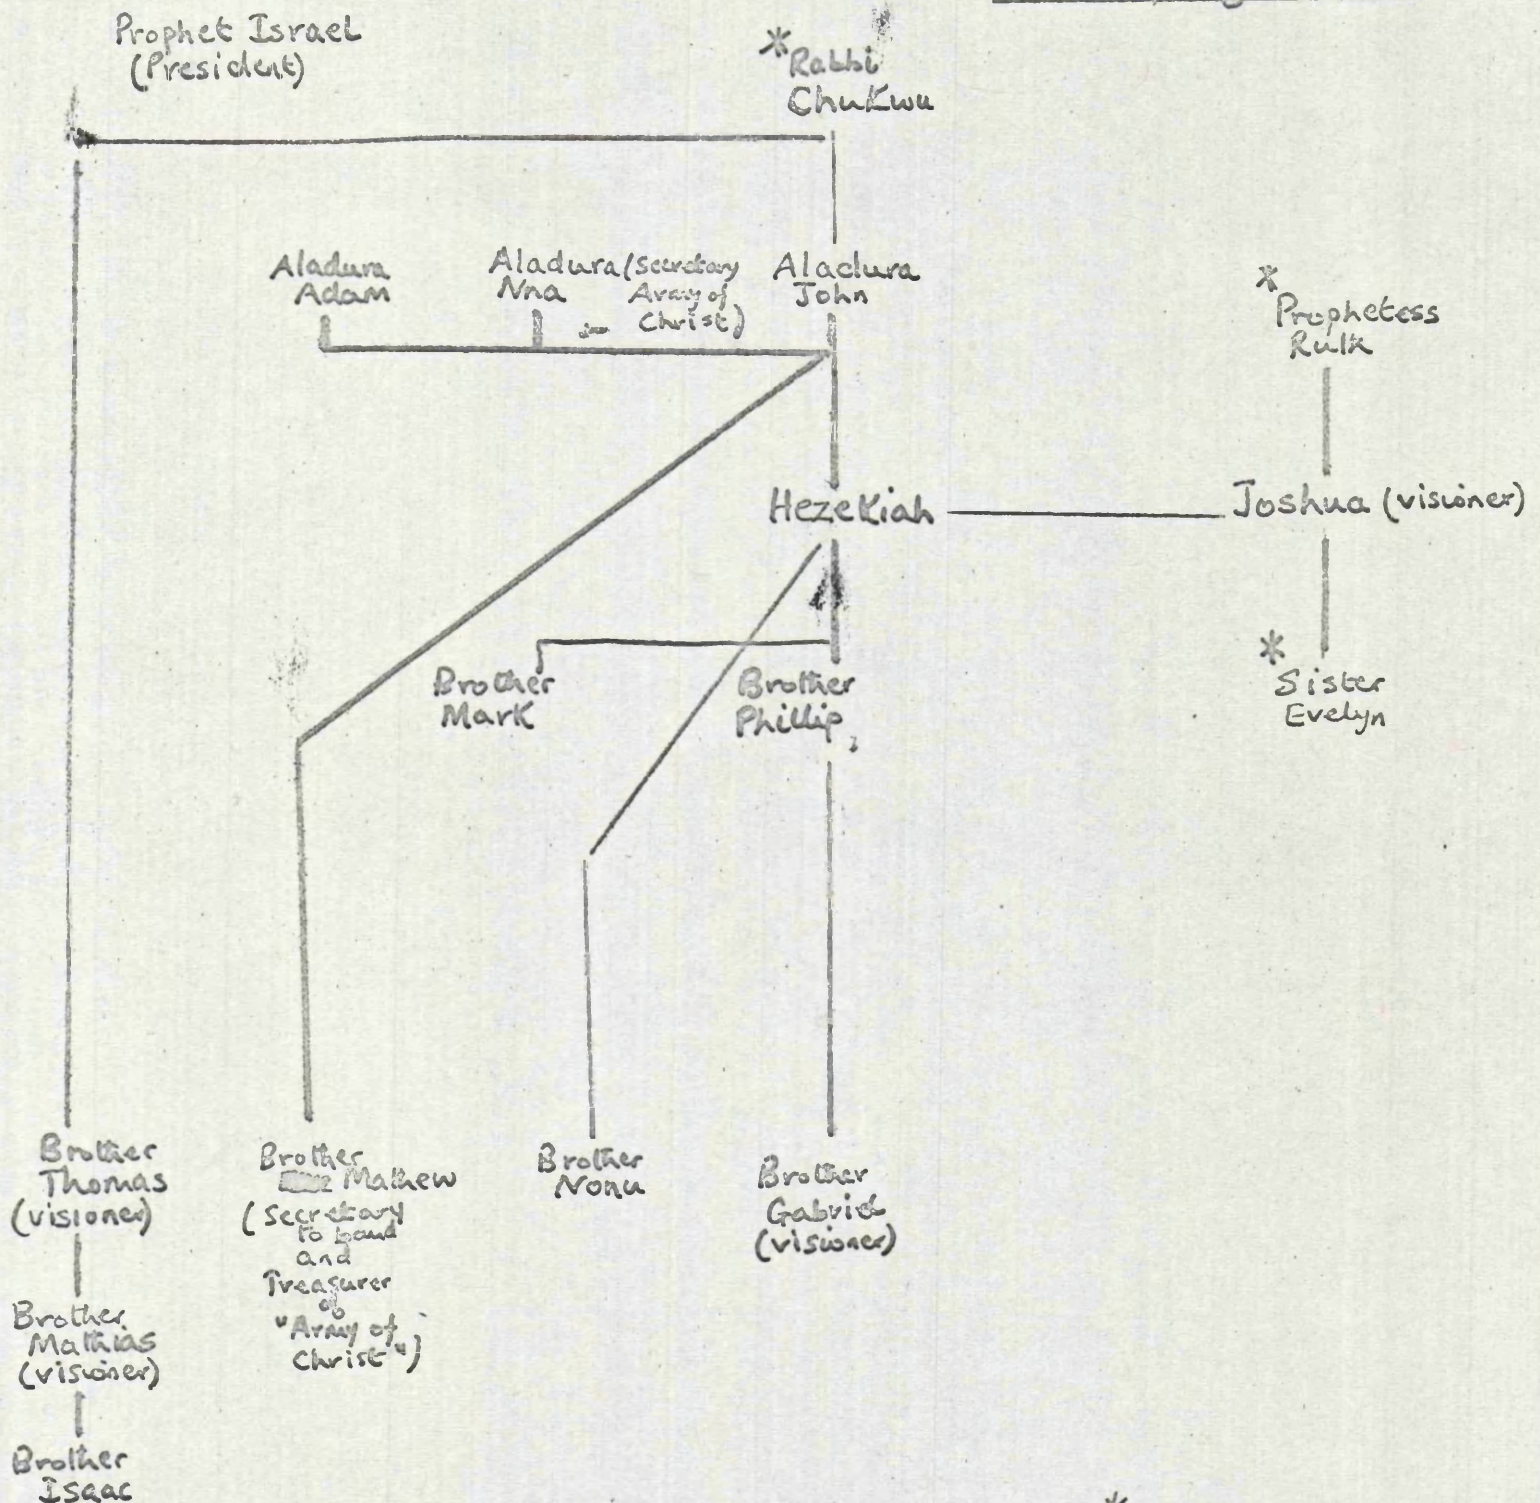 Prophet Israel
(President)
*Rabbi
Chukwu
Aladura
Adam
Aladura (Secretary
Nna Army of
Christ)
Aladura
John
*
Prophetess
Ruth
Hezekiah
Joshua (visioner)
Brother
Mark
Brother
Phillip
*
Sister
Evelyn
Brother
Thomas
(visioner)
Brother
Mathew
(Secretary
to band
and
Treasurer
of
"Army of
Christ")
Brother
Nonu
Brother
Gabriel
(visioner)
Brother
Mathias
(visioner)
Brother
Isaac
*